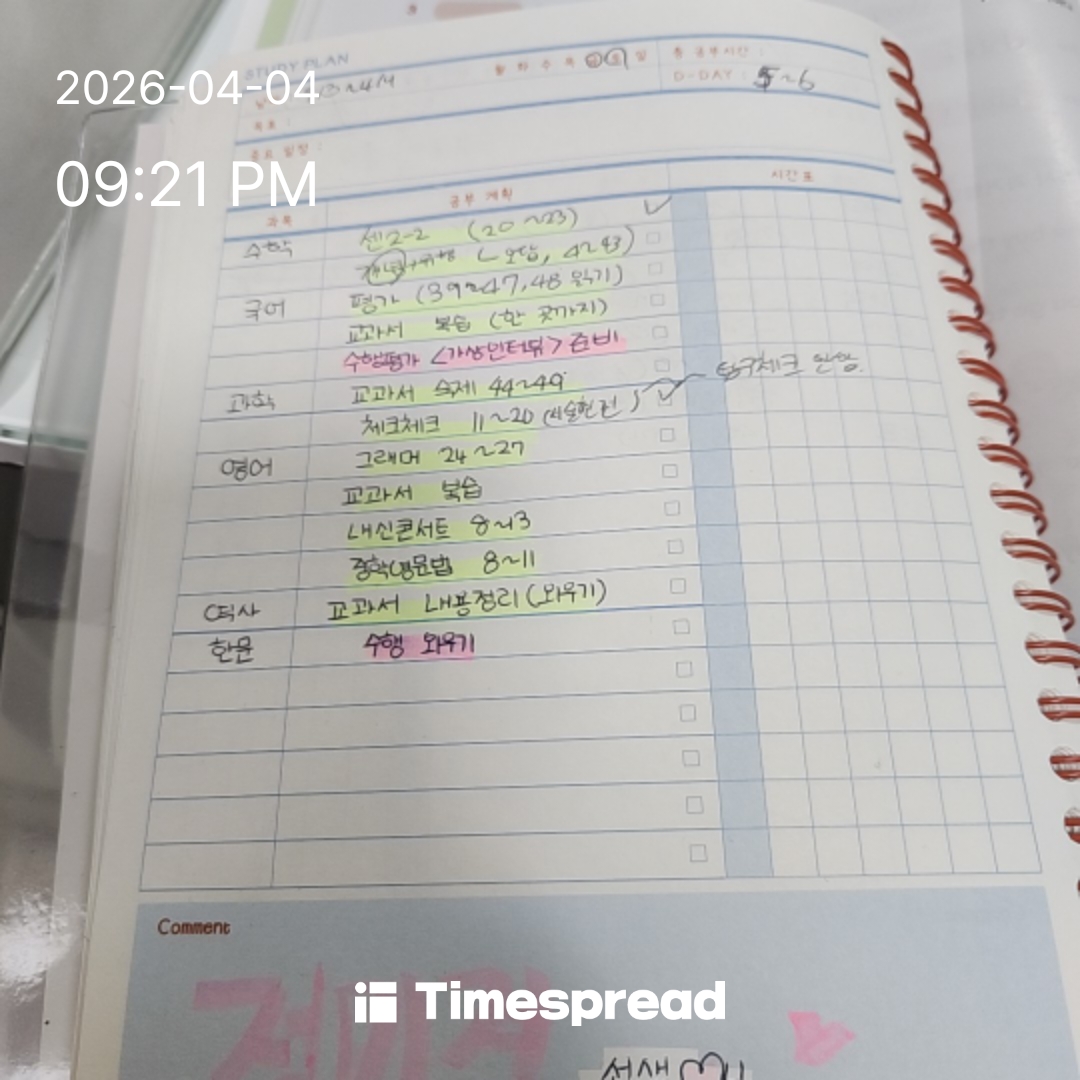 STUDY PLAN
2026-04-04
09:21 PM
월 화 수 목 금 토 일
총 공부시간 :
D-DAY : 5~6
목표 :
중요 일정 :
과목 공부 계획 시간표
수학 쎈2-2 (20~23)
개념+유형 (오답, 4~43)
국어 평가 (39~47, 48 읽기)
교과서 복습 (한 곳까지)
수행평가 <가상인터뷰> 준비
과학 교과서 숙제 44~49
체크체크 11~20 (서술형전)
영어 그래머 24~27
교과서 복습
내신콘서트 8~13
중학영문법 8~11
역사 교과서 내용정리 (외우기)
한문 수행 외우기
Comment
Timespread